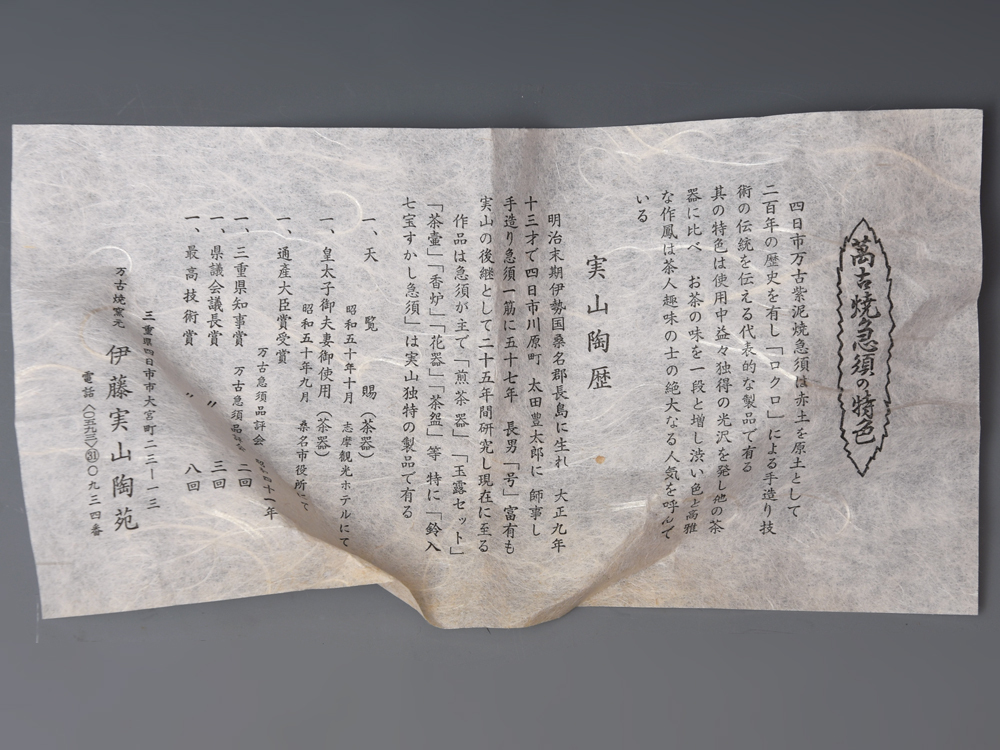 萬古焼急須の特色
四日市万古紫泥焼急須は赤土を原土として
二百年の歴史を有し「ロクロ」による手造り技
術の伝統を伝える代表的な製品で有る
其の特色は使用中益々独得の光沢を発し他の茶
器に比べ お茶の味を一段と増し渋い色と高雅
な作風は茶人趣味の士の絶大なる人気を呼んで
いる
実山陶歴
明治末期伊勢国桑名郡長島に生れ 大正九年
十三才で四日市川原町 太田豊太郎に師事し
手造り急須一筋に五十七年 長男「号」富有も
実山の後継として二十五年間研究し現在に至る
作品は急須が主で「煎茶器」「玉露セット」
「茶壷」「香炉」「花器」「茶盌」等 特に「鈴入
七宝すかし急須」は実山独特の製品で有る
一、天覧賜(茶器)
昭和五十年十月 志摩観光ホテルにて
一、皇太子御夫妻御使用(茶器)
昭和五十年九月 桑名市役所にて
一、通産大臣賞受賞
万古急須品評会 昭和四十一年
一、三重県知事賞 万古急須品評会 二回
一、県議会議長賞 〃 三回
一、最高技術賞 〃 八回
万古焼窯元 伊藤実山陶苑
三重県四日市市大宮町二三―一三
電話〈〇五九三〉㉛〇九三四番